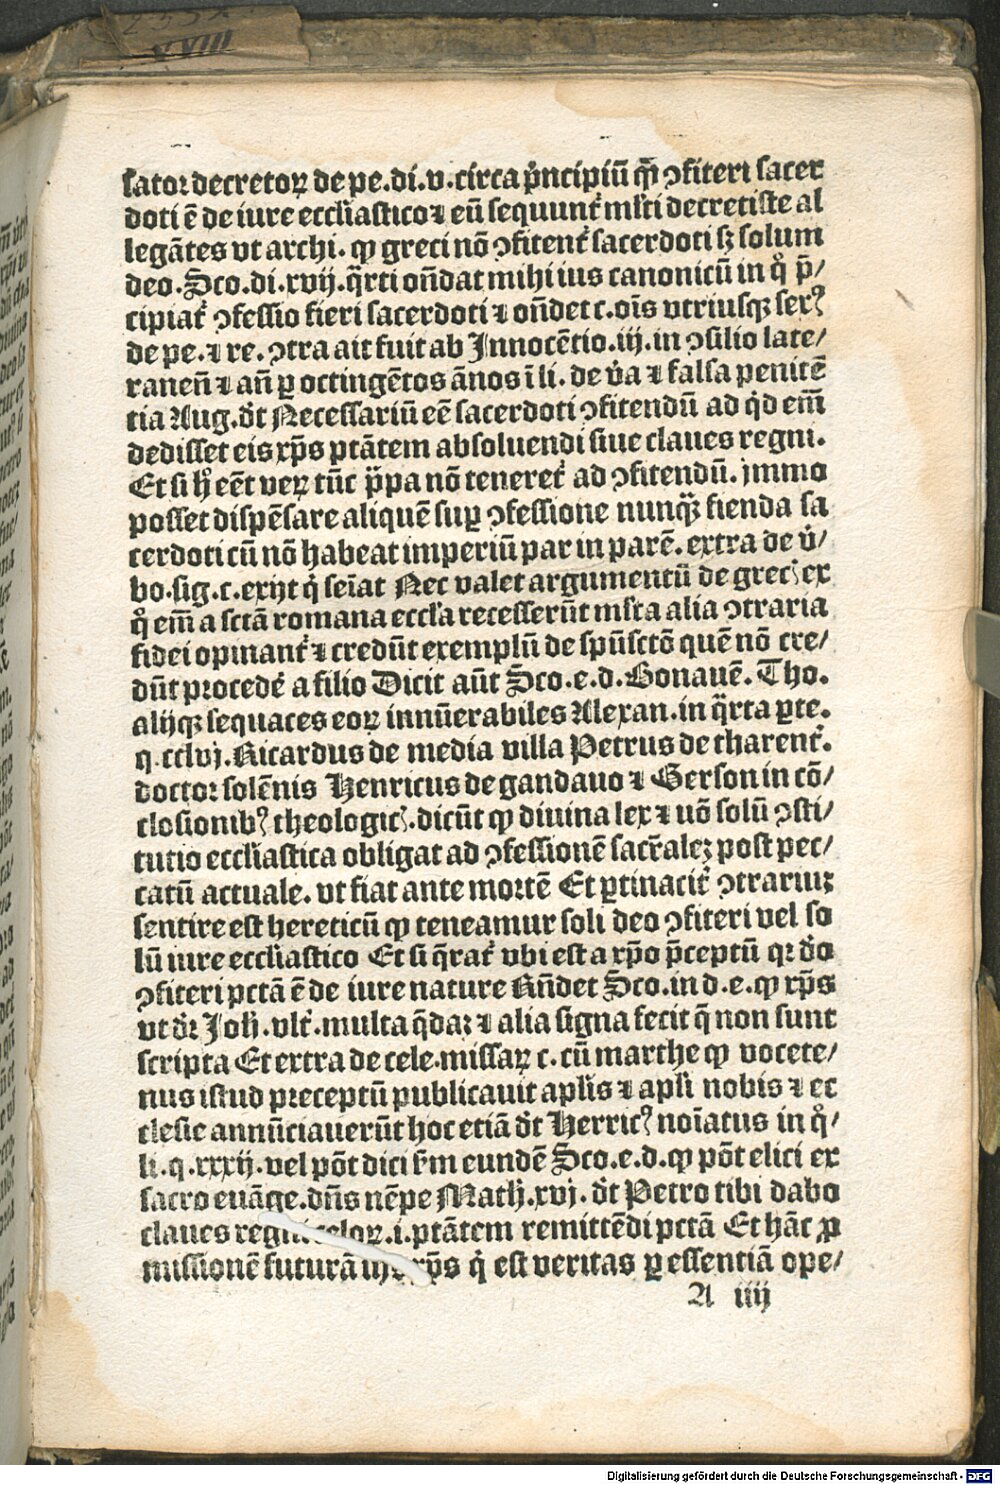 sator decretoꝝ de pe.di.v.circa pͥncipiū qm̄ ꝯfiteri sacer
doti ē de iure eccl̓iastico ⁊ eū sequunt̉ ml̓ti decretiste al
legātes vt archi. ꝙ greci nō ꝯfitent̉ sacerdoti sꝫ solum
deo. Sco.di.xvij.q̄rti on̄dat mihi ius canonicū in qͦ p̄/
cipiat̉ ꝯfessio fieri sacerdoti ⁊ on̄det c.oīs vtriusqꝫ serꝰ
de pe.⁊ re. ꝯtra ait fuit ab Innocētio.iij. in ꝯsilio late/
raneñ ⁊ añ ꝑ octingētos ānos ī li. de v̓a ⁊ falsa penitē
tia Aug.d̓t Necessariū eē sacerdoti ꝯfitendū ad qͥd em̄
dedisset eis xp̄s ptātem absoluendi siue claues regni.
Et si hͦ eēt veꝝ tūc p̄pa nō teneret̉ ad ꝯfitendū. jmmo
posset dispēsare aliquē suꝑ ꝯfessione nunqͣꝫ fienda sa
cerdoti cū nō habeat imperiū par in parē. extra de v̓/
bo.sig.c.exijt qͥ seīat Nec valet argumentū de grecꝭ ex
qͦ em̄ a sctā romana eccl̓a recesserūt ml̓ta alia ꝯtraria
fidei opinant̉ ⁊ credūt exemplū de spūsctō quē nō cre/
dūt procede̓ a filio Dicit aūt Sco.e.d. Bonauē. Tho.
alijqꝫ sequaces eoꝝ innūerabiles Alexan. in q̄rta ꝑte.
q.cclvj. Ricardus de media villa Petrus de tharent̉.
doctor solēnis Henricus de gandauo ⁊ Gerson in cō/
clusionibꝰ theologicꝭ. dicūt ꝙ diuina lex ⁊ nō solū ꝯsti/
tutio eccl̓iastica obligat ad ꝯfessionē sacr̄alez post pec/
catū actuale. vt fiat ante mortē Et ꝑtinacit̉ ꝯtrariuꝫ
sentire est hereticū ꝙ teneamur soli deo ꝯfiteri vel so
lū iure eccl̓iastico Et si q̄rat̉ vbi est a xp̄o p̄ceptū qꝛ d̓o
ꝯfiteri pctā ē de iure nature Rn̄det Sco. in d.e.ꝙ xp̄s
vt d̓r Joh̄. vlt̉. multa q̄daꝫ ⁊ alia signa fecit q̄ non sunt
scripta Et extra de cele.missaꝝ c. cū marthe ꝙ vocete/
nus istud preceptū publicauit apl̓is ⁊ apl̓i nobis ⁊ ec
clesie annūciauerūt hoc etiā d̓t Herricꝰ noīatus in qͦ/
li.q.xxxij.vel pōt dici ẜm eundē Sco.e.d.ꝙ pōt elici ex
sacro euāge. dn̄s nēpe Math̄.xvj. d̓t Petro tibi dabo
claues regni celoꝝ.i.ptātem remittēdi pctā Et hāc ꝓ
missionē futurā xp̄s qͥ est veritas ꝑ essentiā ope/
A iiij
Digitalisierung gefördert durch die Deutsche Forschungsgemeinschaft - DFG